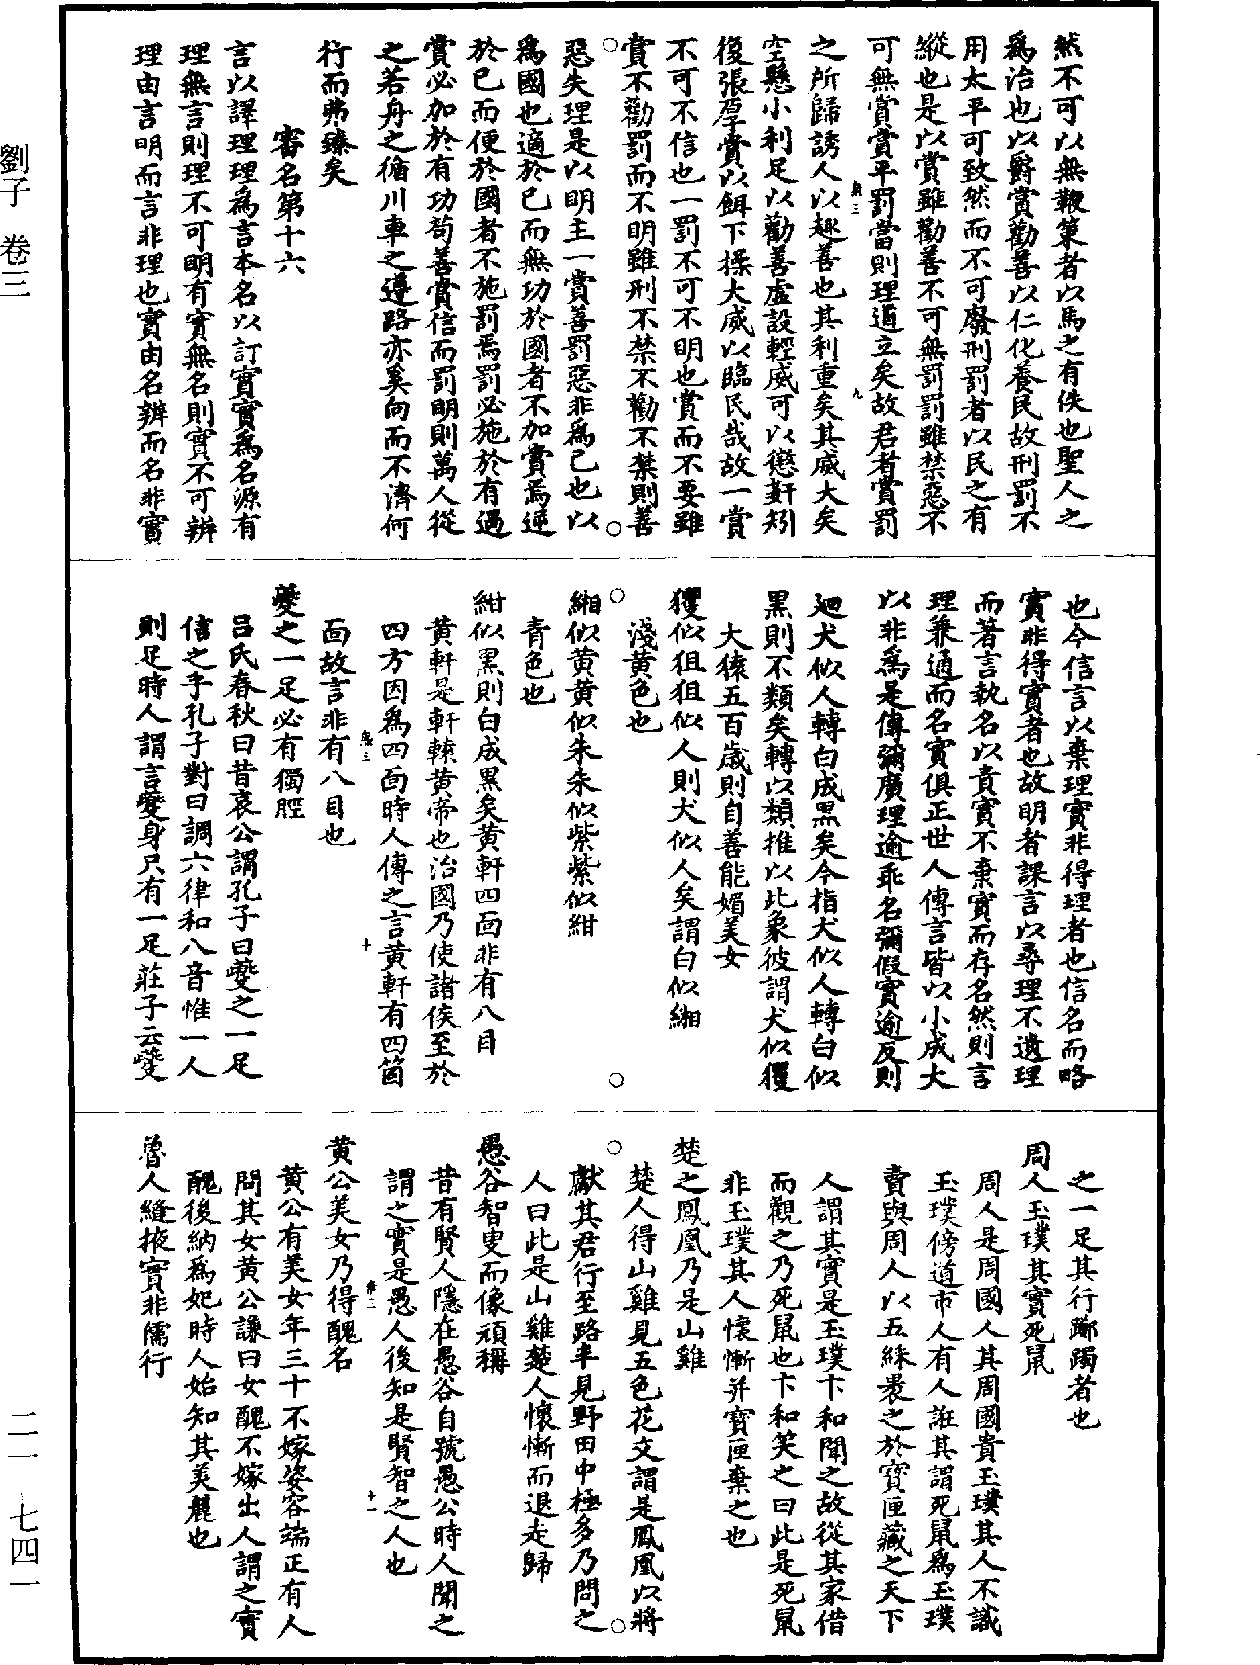 然不可以無鞭策者以馬之有佚也聖人之
爲治也以爵賞勸善以仁化養民故刑罰不
用太平可致然而不可廢刑罰者以民之有
縱也是以賞雖勸善不可無罰罰雖禁惡不
可無賞賞平罰當則理道立矣故君者賞罰
之所歸誘人以趣善也其利重矣其威大矣
空懸小利足以勸善虛設輕威可以懲姧矧
復張厚賞以餌下操大威以臨民哉故一賞
不可不信也一罰不可不明也賞而不要雖
賞不勸罰而不明雖刑不禁不勸不禁則善
惡失理是以明主一賞善罰惡非爲己也以
爲國也適於己而無功於國者不加賞焉逆
於己而便於國者不施罰焉罰必施於有過
賞必加於有功苟善賞信而罰明則萬人從
之若舟之循川車之遵路亦奚向而不濟何
行而弗臻矣
審名第十六
言以譯理理爲言本名以訂實實爲名源有
理無言則理不可明有實無名則實不可辨
理由言明而言非理也實由名辨而名非實
也今信言以棄理實非得理者也信名而略
實非得實者也故明者課言以尋理不遺理
而著言執名以責實不棄實而存名然則言
理兼通而名實俱正世人傳言皆以小成大
以非爲是傳彌廣理逾乖名彌假實逾反則
迴犬似人轉白成黑矣今指犬似人轉白似
黑則不類矣轉以類推以此象彼謂犬似玃
大猿五百歲則自善能媚美女
玃似狙狙似人則犬似人矣謂白似緗
淺黃色也
緗似黃黃似朱朱似紫紫似紺
青色也
紺似黑則白成黑矣黃軒四面非有八目
黃軒是軒轅黃帝也治國乃使諸侯至於
四方因爲四面時人傳之言黃軒有四箇
面故言非有八目也
夔之一足必有獨脛
呂氏春秋曰昔哀公謂孔子曰夔之一足
信之乎孔子對曰調六律和八音惟一人
則足時人謂言夔身只有一足莊子云夔
之一足其行躑躅者也
周人玉璞其實死鼠
周人是周國人其周國貴玉璞其人不識
玉璞傍道市人有人誑其謂死鼠爲玉璞
賣與周人以五綵褁之於寶匣藏之天下
人謂其實是玉璞卞和聞之故從其家借
而觀之乃死鼠也卞和笑之曰此是死鼠
非玉璞其人懷慚并寶匣棄之也
楚之鳳凰乃是山雞
楚人得山雞見五色花文謂是鳳凰以將
獻其君行至路半見野田中極多乃問之
人曰此是山雞楚人懷慚而退走歸
愚谷智叟而像頑稱
昔有賢人隱在愚谷自號愚公時人聞之
謂之實是愚人後知是賢智之人也
黃公美女乃得醜名
黃公有美女年三十不嫁姿容端正有人
問其女黃公謙曰女醜不嫁出人謂之實
醜後納爲妃時人始知其美麗也
魯人縫掖實非儒行
劉子 卷三
二一 七四一